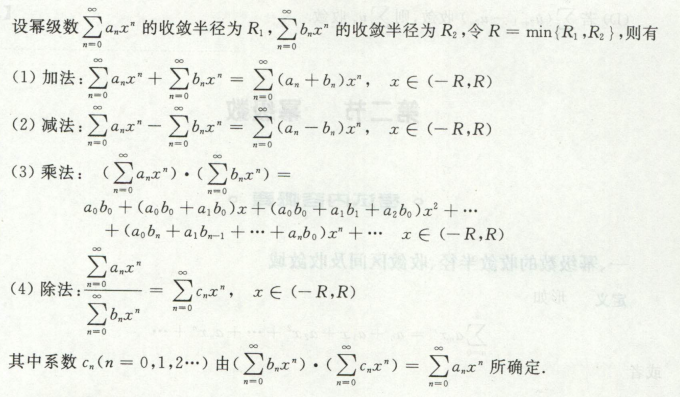 设幂级数∑_{n=0}^{∞} a_n x^n 的收敛半径为 R_1, ∑_{n=0}^{∞} b_n x^n 的收敛半径为 R_2, 令 R = min{R_1, R_2}, 则有
(1) 加法: ∑_{n=0}^{∞} a_n x^n + ∑_{n=0}^{∞} b_n x^n = ∑_{n=0}^{∞} (a_n + b_n) x^n, x ∈ (−R,R)
(2) 减法: ∑_{n=0}^{∞} a_n x^n − ∑_{n=0}^{∞} b_n x^n = ∑_{n=0}^{∞} (a_n − b_n) x^n, x ∈ (−R,R)
(3) 乘法: (∑_{n=0}^{∞} a_n x^n) · (∑_{n=0}^{∞} b_n x^n) =
a_0 b_0 + (a_0 b_0 + a_1 b_0) x + (a_0 b_0 + a_1 b_1 + a_2 b_0) x^2 + ⋯
+ (a_0 b_n + a_1 b_{n−1} + ⋯ + a_n b_0) x^n + ⋯ x ∈ (−R,R)
(4) 除法: \frac{∑_{n=0}^{∞} a_n x^n}{∑_{n=0}^{∞} b_n x^n} = ∑_{n=0}^{∞} c_n x^n, x ∈ (−R,R)
其中系数 c_n (n = 0,1,2⋯) 由 (∑_{n=0}^{∞} b_n x^n) · (∑_{n=0}^{∞} c_n x^n) = ∑_{n=0}^{∞} a_n x^n 所确定.